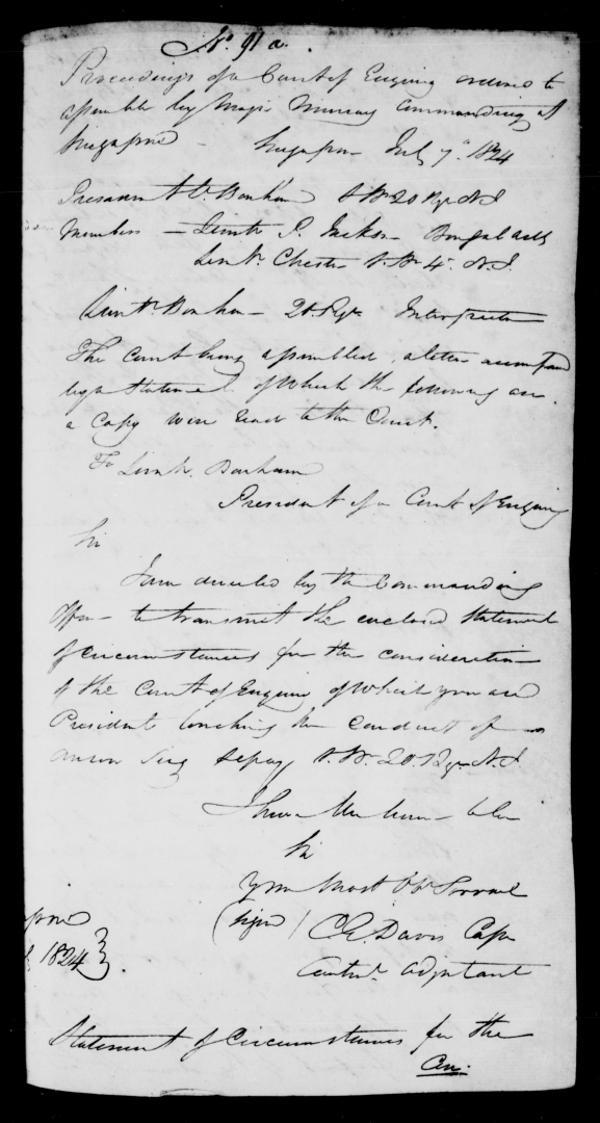 No. 91 a.
Proceedings of a Court of Enquiry ordered to
assemble by Major Murray Commanding at
Singapore - Singapore July 7th. 1824
President Lt. Bonham 20 Regt N.I
Members - Lieut P. Jackson Bengal Arty
Lieut. Chester 4th. N.I.
Lieut. Bonham - 20. Regt. Interpreter
The Court being assembled, a letter accompanied
by a statement of which the following are
a Copy were read to the Court.
To Lieut. Bonham
President of a Court of Enquiry
Sir
I am directed by the Commanding
Officer to transmit the enclosed Statement
of circumstances for the consideration
of the Court of Enquiry of which you are
President touching the conduct of
Sing Sepoy 20. Regt. N.I.
I have the honor to be
Sir
Your Most Obt Servant
(Signed) C E Davis Capt
Cantont. Adjutant
apore
1824
Statement of Circumstances for the
Con.